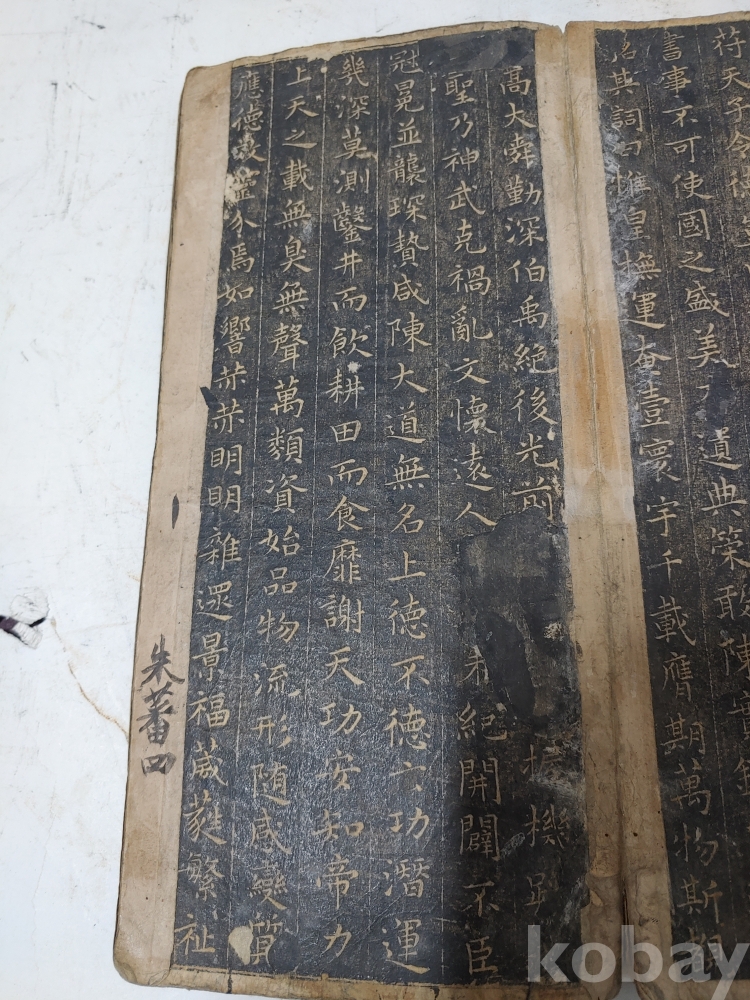 苻天子令德
書事不可使國之盛美 遺典策敢陳實
其詞曰惟皇撫運奄壹寰宇千載膺期萬物斯覩
高大舜勤深伯禹絕後光前 握機
聖乃神武克禍亂文懷遠人 未絕開闢不臣
冠冕並襲琛贄咸陳大道無名上德不德玄功潛運
幾深莫測鑿井而飲耕田而食靡謝天功安知帝力
上天之載無臭無聲萬類資始品物流形隨感變質
應德效靈介焉如響赫赫明明雜還景福葳蕤繁祉
朱蕃四
kobay